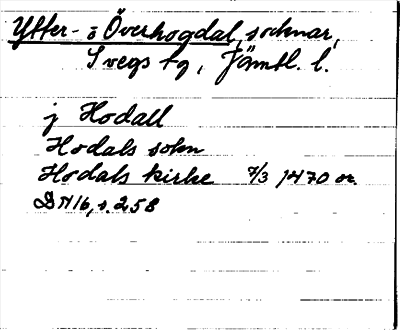 Ytter- o Överhogdal socknar,
Svegs tg, Jämtl. l.
j Hodall
Hodals sokn
Hodals kirke 7/3 1470 or.
DN 16, s. 258